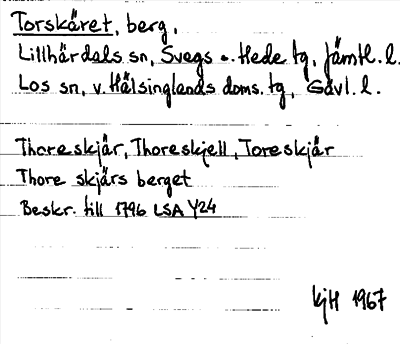 Torskäret, berg,
Lillhärdals sn, Svegs o. Hede tg, Jämtl. l.
Los sn, v. Hälsinglands doms. tg, Gävl. l.
Thoreskjär, Thoreskjell, Toreskjär
Thore skjärs berget
Beskr. till 1796 LSA Y24
kjH 1967